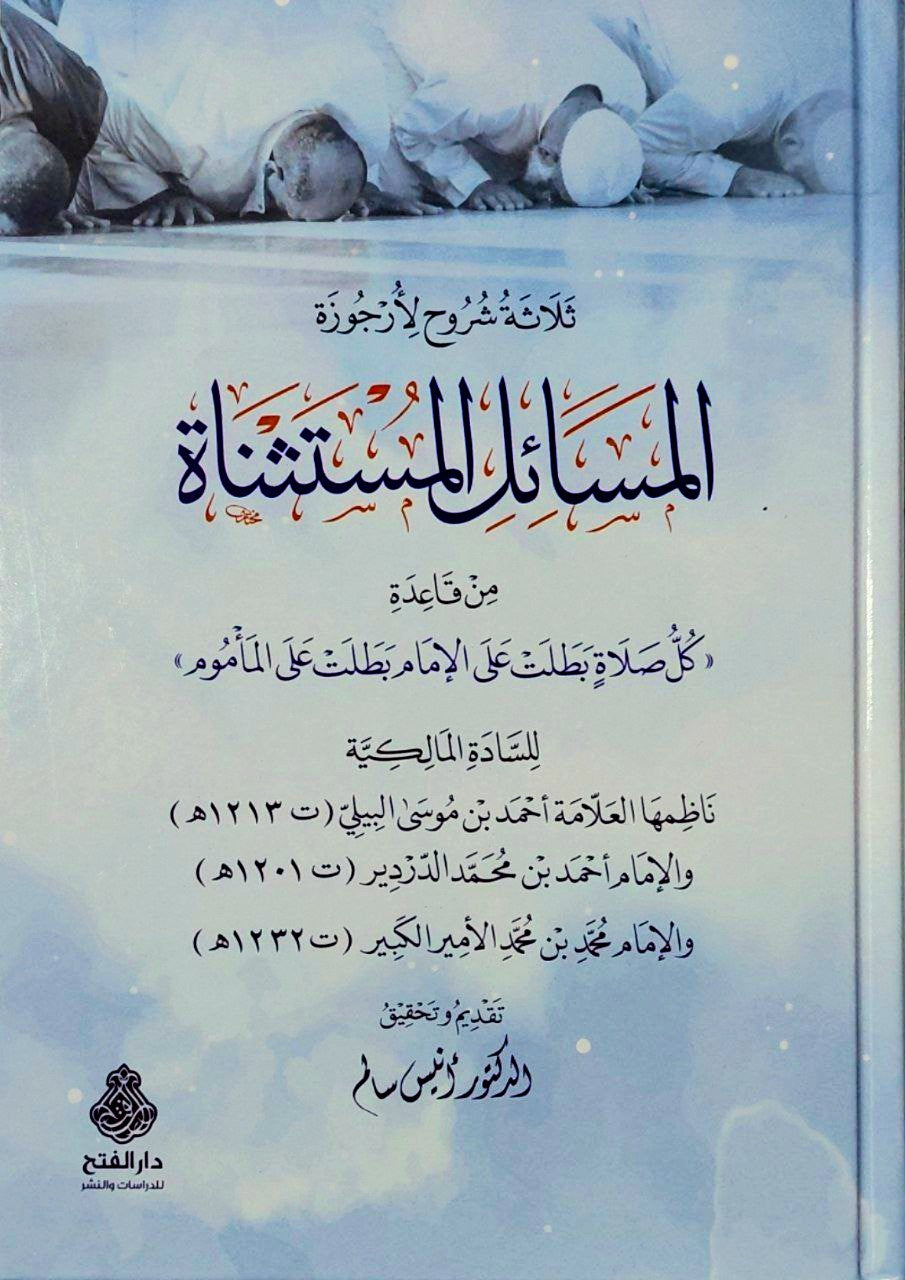 ثَلَاثَةُ شُرُوح لِأُرْجُوزَة
المَسَائِلِ المُسْتَثْنَاة
مِنْ قَاعِدَةِ
«كُلُّ صَلَاةٍ بَطَلَتْ عَلَى الإمَام بَطَلَتْ عَلَى المَأْمُوم»
لِلسَّادَةِ المَالِكِيَّة
نَاظِمِهَا العَلّامَة أحْمَد بْنْ مُوسَى البِيلِيّ (ت ١٢١٣هـ)
والإمَام أحْمَد بْنْ مُحَمَّد الدّرْدِير (ت ١٢٠١هـ)
والإمَام مُحَمَّدِ بْنْ مُحَمَّدِ الأمِير الكَبِير (ت ١٢٣٢هـ)
تَقْدِيمُ وتَحْقِيْقُ
الدكتور أنيس سالم
دار الفتح
للدراسات والنشر